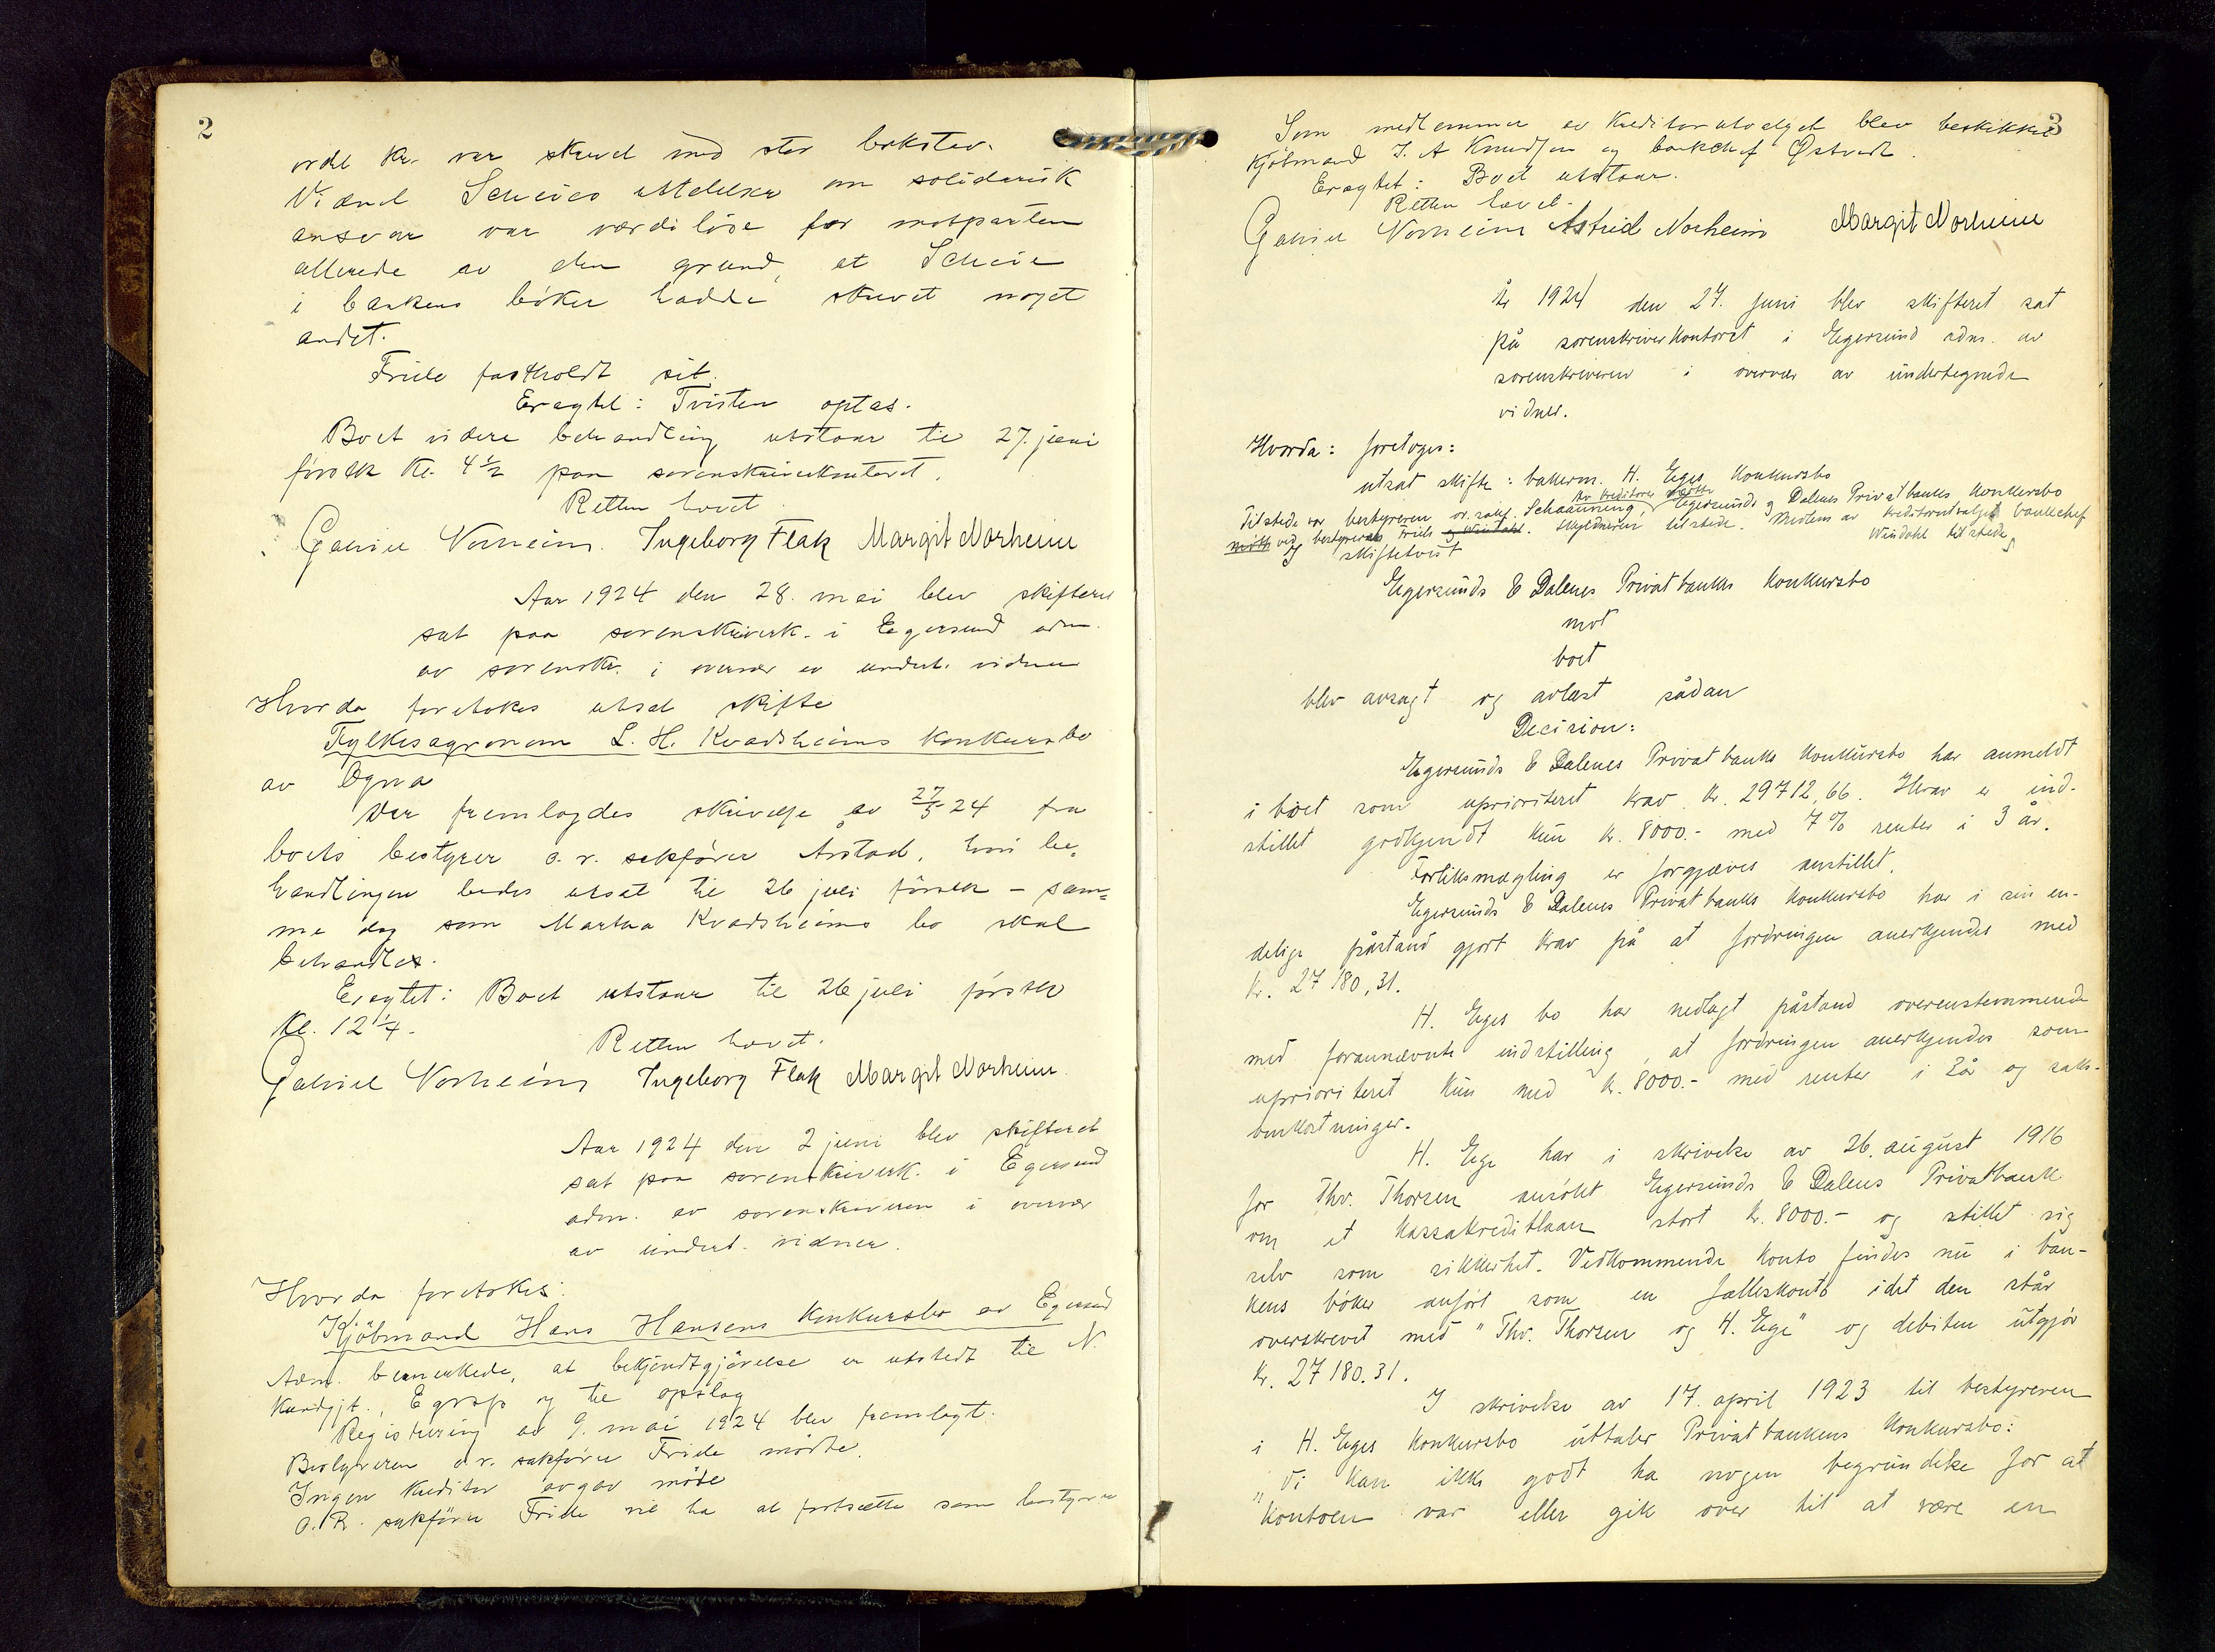 2
ordet kr. var skrevet med stor bokstav.
Vidnet Scheies uttalelser om solidarisk
ansvar var værdiløse for motparten
allerede av den grund, at Scheie
i bankens bøker hadde skrevet noget
andet.
Friele fastholdt sit.
Eragtet: Tvisten optas.
Boet videre behandling utstaar til 27. juni
førstk kl. 4 1/2 paa sorenskriverkontoret.
Retten hævet
Gabriel Norheim. Ingeborg Flak Margit Norheim
Aar 1924 den 28. mai blev skifteret
sat paa sorenskriverk. i Egersund adm.
av sorenskr. i overvær av undert. vidner
Hvorda foretokes utsat skifte
Fylkesagronom L. H. Kvadsheims konkursbo
av Ogna
Der fremlagdes skrivelse av 27/5 24 fra
boets bestyrer o. r. sakfører Årstad, hvori be-
handlingen bedes utsat til 26 juli førstk – sam=
me dag som Martha Kvadsheims bo skal
behandles.
Eragtet: Boet utstaar til 26 juli førstk
kl. 12 1/4.
Retten hævet.
Gabriel Norheim Ingeborg Flak Margit Norheim.
Aar 1924 den 2 juni blev skifteret
sat paa sorenskriverk. i Egersund
adm. av sorenskriveren i overvær
av undert. vidner.
Hvorda foretokes:
Kjöbmand Hans Hansens konkursbo av Egersund
Adm. bemerkede, at bekjendtgjörelse er utstedt til N.
Kundgjt., Egrsp og til opslag
Registrering av 9. mai 1924 blev fremlagt.
Bestyreren o. r. sakfører Friele mødte.
Ingen kreditor avgav møte
O. R. sakfører Friele vil ha at fortsætte som bestyrer
3
Som medlemmer av kreditorutvalget blev beskikket
kjöbmand J. A Knudsen og bankchef Østvedt.
Eragtet: Boet utstaar.
Retten hævet.
Gabriel Norheim Astrid Norheim Margit Norheim
År 1924 den 27. juni blev skifteret sat
på sorenskriverkontoret i Egersund adm. av
sorenskriveren i overvær av undertegnede
vidner.
Hvorda: foretoges:
utsat skifte: bakerm. H. Eges konkursbo
Av kreditorer mødte
Tilstede var bestyreren or. sakf. Schaanning, Egersunds og Dalenes Privatbanks konkursbo
mødte ved bestyreren Friele og Windahl. Skyldneren tilstede. Medlem av kreditorutvalget bankchef
Windahl tilstede
I skiftetvist
Egersunds & Dalenes Privatbanks konkursbo
mot
boet
blev avsagt og avlæst sådan
Decision:
Egersunds & Dalenes Privatbanks konkursbo har anmeldt
i boet som uprioriteret krav kr. 29712,66. Herav er ind-
stillet godkjendt kun kr. 8000.- med 7% renter i 3 år.
Forliksmægling er forgjæves anstillet.
Egersunds & Dalenes Privatbanks konkursbo har i sin en-
delige påstand gjort krav på at fordringen anerkjendes med
kr. 27180,31.
H. Eges bo har nedlagt påstand overensstemmende
med forannævnte indstilling, at fordringen anerkjendes som
uprioriteret kun med kr. 8000.- med renter i 2år og saks-
omkostninger.
H. Ege har i skrivelse av 26. august 1916
for Thv. Thorsen ansökt Egersunds & Dalenes Privatbank
om et kassakreditlaan stort kr. 8000.- og stillet sig
selv som sikkerhet. Vedkommende konto findes nu i ban-
kens bøker anført som en fælleskonto idet den står
overskrevet med "Thv. Thorsen og H. Ege" og debiten utgjør
kr. 27180.31.
I skrivelse av 17. april 1923 til bestyreren
i H. Eges konkursbo uttaler Privatbankens konkursbo:
"Vi kan ikke godt ha nogen begrundelse for at
kontoen var eller gik over til at være en